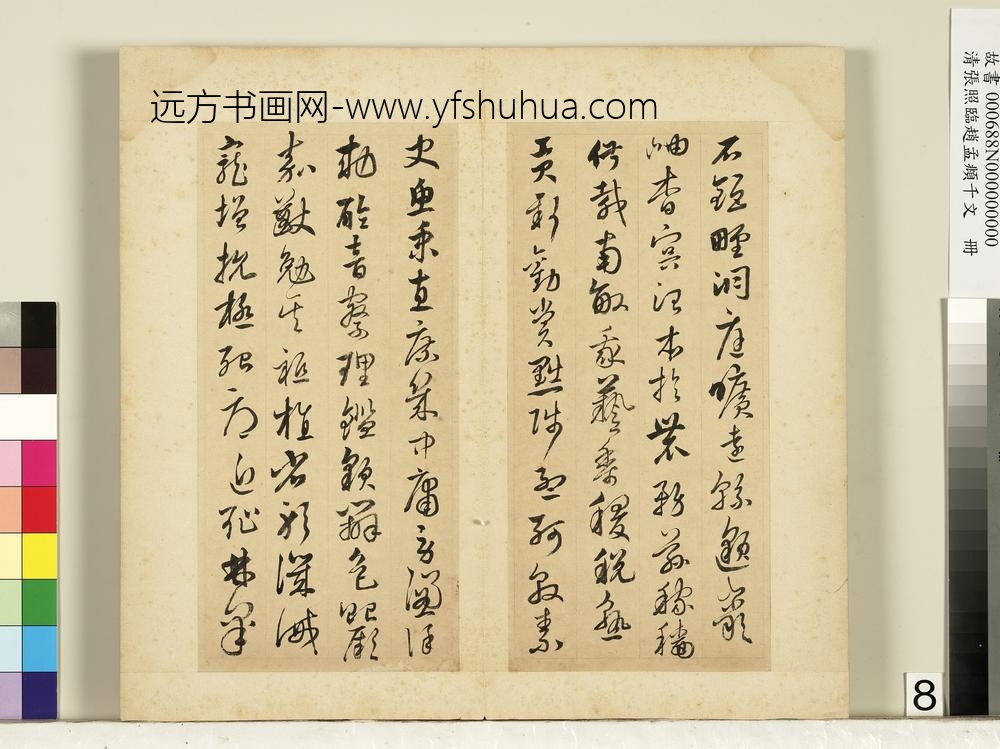 远方书画网-www.yfshuhua.com
石鉅野洞庭曠遠綿邈巖
岫杳冥治本於農務茲稼穡
俶載南畝我藝黍稷稅熟
貢新勸賞黜陟孟軻敦素
史魚秉直庶幾中庸勞謙謹
勑聆音察理鑑貌辨色貽厥
嘉猷勉其祗植省躬譏誡
寵增抗極殆辱近恥林皋
故書 000688N000000000
清張照臨趙孟頫千文　冊
8